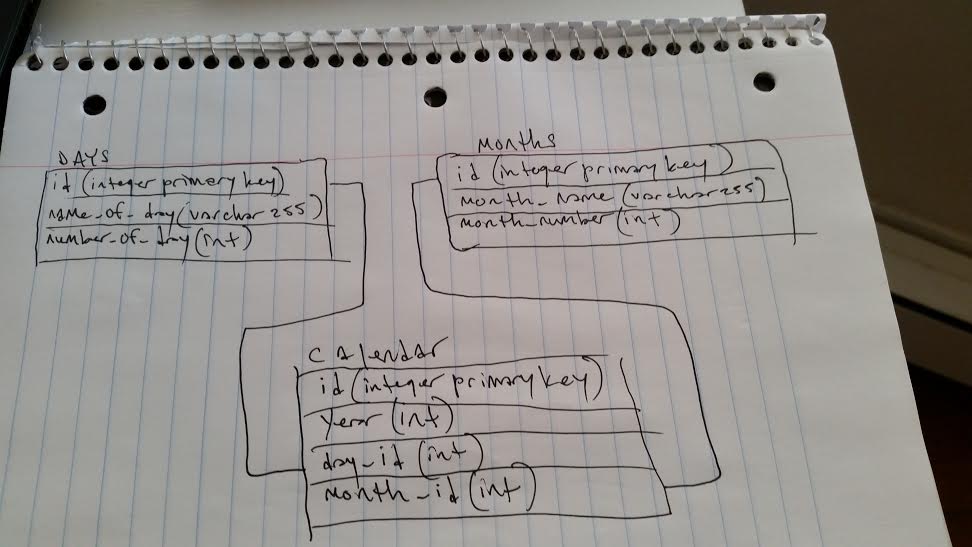 DAYS
id (integer primary key)
name_of_day (varchar 255)
number_of_day (int)
Months
id (integer primary key)
month_name (varchar 255)
month_number (int)
Calendar
id (integer primary key)
year (int)
day_id (int)
month_id (int)